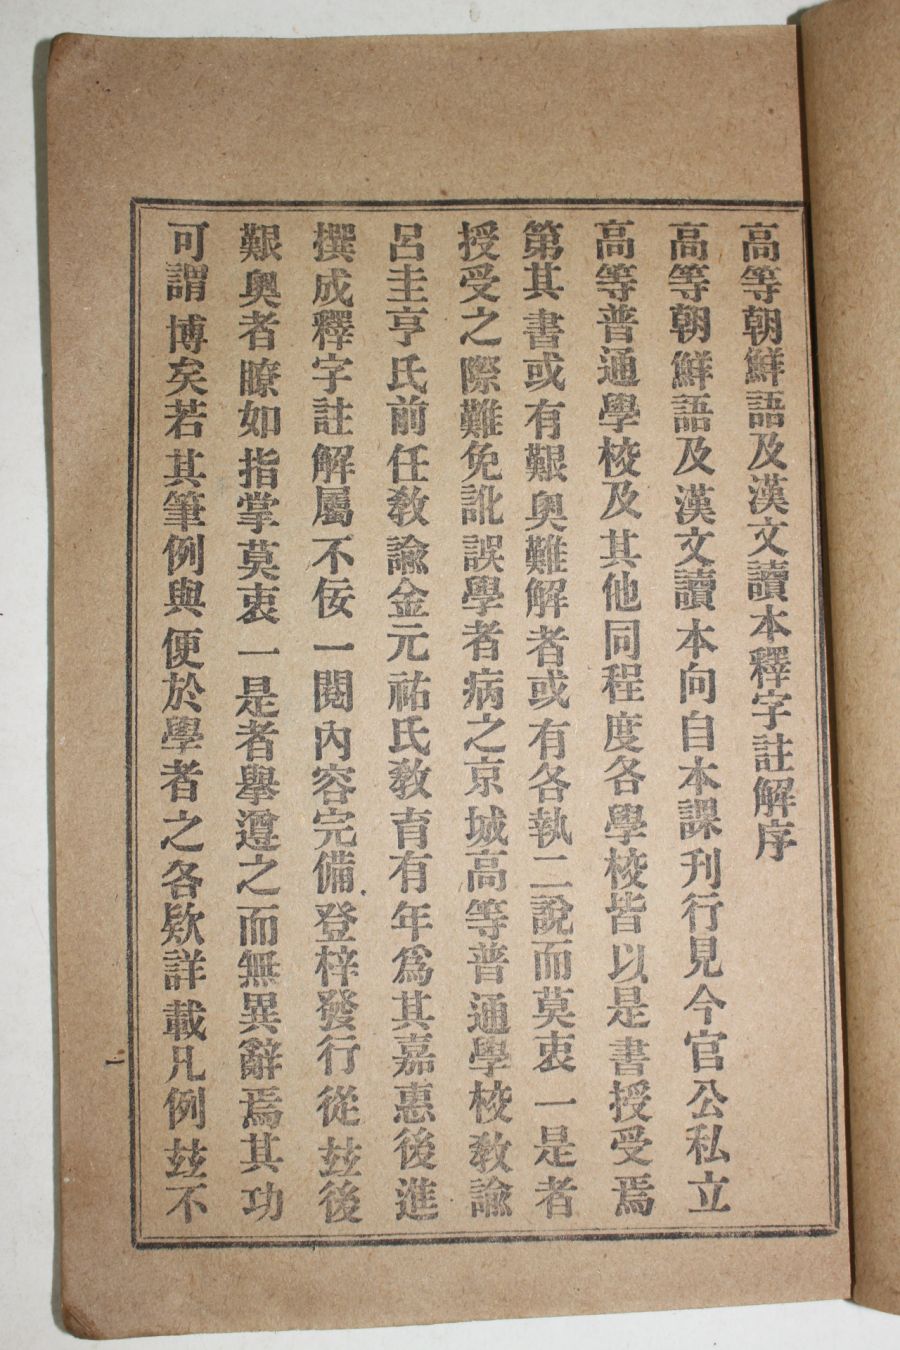 高等朝鮮語及漢文讀本釋字註解序
高等朝鮮語及漢文讀本向自本課刊行見今官公私立
高等普通學校及其他同程度各學校皆以是書授受焉
第其書或有艱奧難解者或有各執二說而莫衷一是者
授受之際難免訛誤學者病之京城高等普通學校敎諭
呂圭亨氏前任敎諭金元祐氏敎育有年爲其嘉惠後進
撰成釋字註解屬不佞一閱內容完備登梓發行從玆後
艱奧者瞭如指掌莫衷一是者擧遵之而無異辭焉其功
可謂博矣若其筆例與便於學者之各欵詳載凡例玆不
一